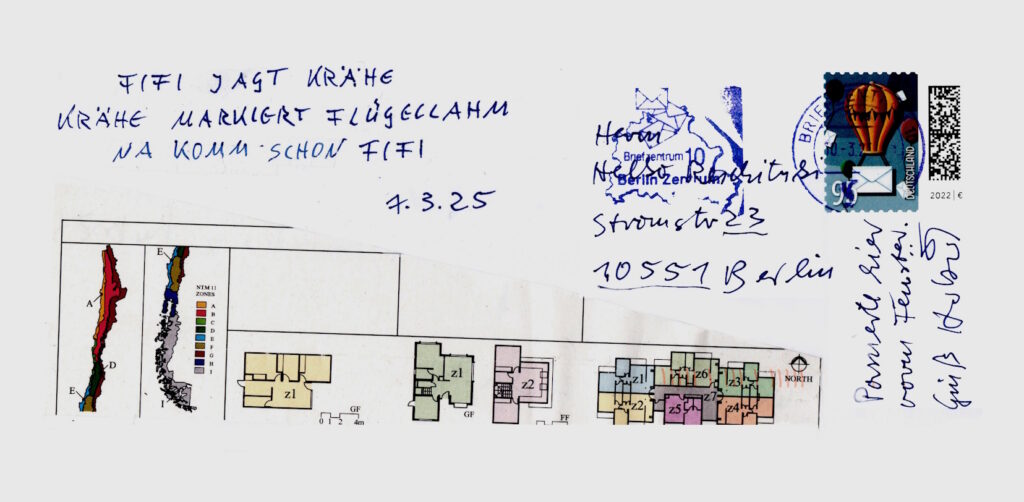 FIFI JAGT KRÄHE
KRÄHE MARKIERT FLÜGELLAHM
NA KOMM SCHON FIFI
7.3.25
Briefzentrum 10
Berlin Zentrum
BRIEF
95
DEUTSCHLAND
2022 | €
Herrn
Stromstr 23
10551 Berlin
hier
vorm Fenster.
Gruß
E
A
D
E
E
I
NTM 11
ZONES
A
B
C
D
E
F
G
H
I
z1
GF
0 1 2 4m
z1
GF
z2
FF
z1
z2
z6
z7
z5
z3
z4
NORTH